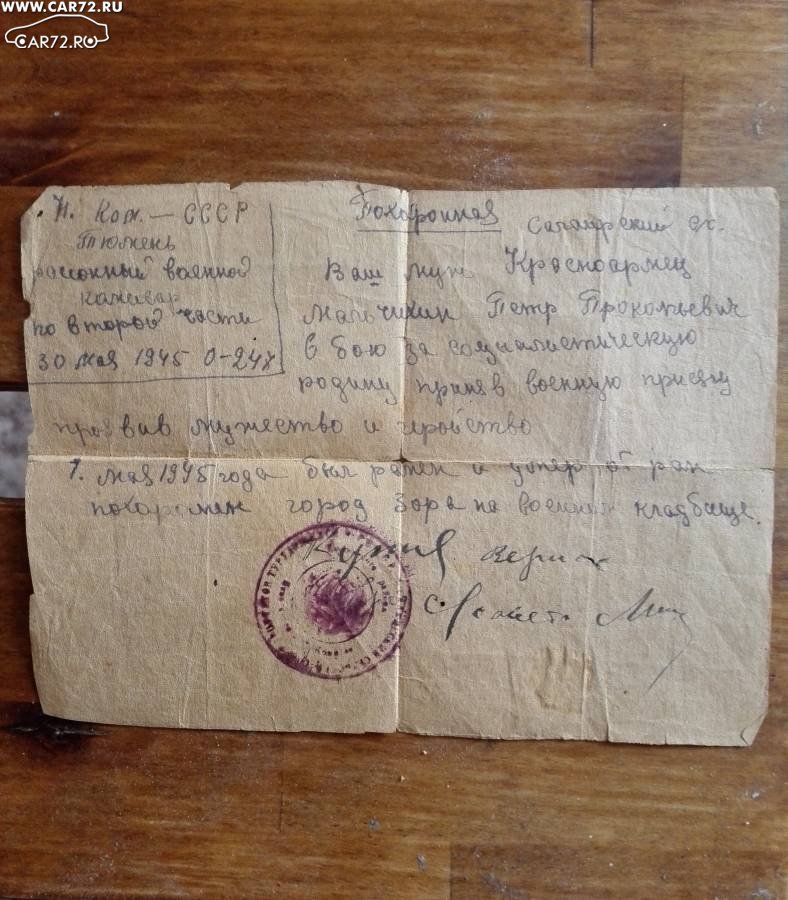 WWW.CAR72.RU
CAR72.RU
Н. Ком. — СССР
Тюмень
районный военной
по второй части
30 мая 1945 0-247
Похоронная
Ваш муж Красноармец
Мальчихин Петр Прокопьевич
в бою за социалистическую
родину приняв военную присягу
проявив мужество и геройство
1. мая 1945 года был ранен и умер от ран
похоронен город Зора на военном кладбище.
Копия верна